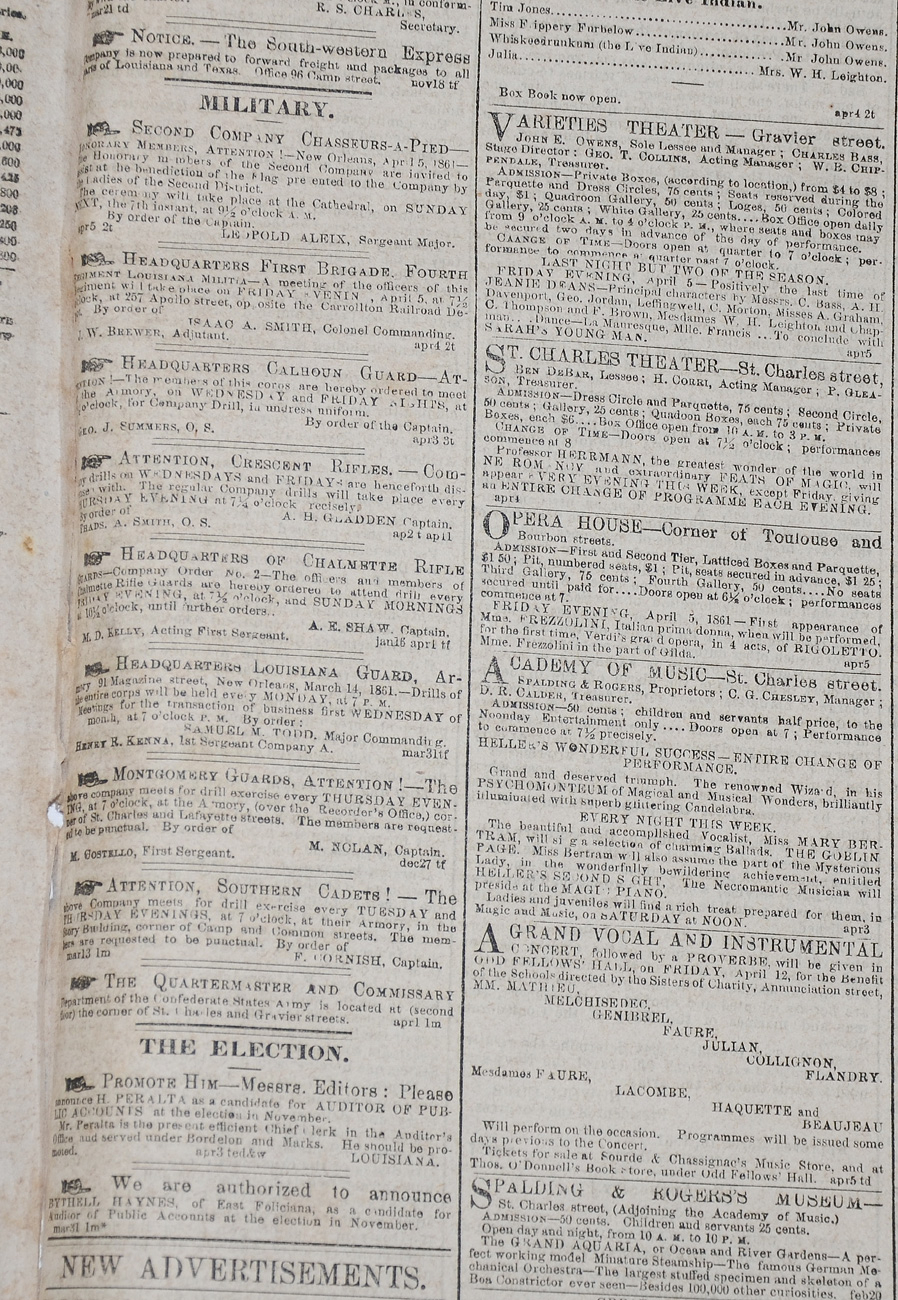 R. S. CHARLES,
mar21 td Secretary.
NOTICE. — The South-western Express
Company is now prepared to forward freight and packages to all
parts of Louisiana and Texas. Office 96 Camp street. nov18 tf
MILITARY.
SECOND COMPANY CHASSEURS-A-PIED—
HONORARY MEMBERS, ATTENTION!—New Orleans, April 5, 1861—
The Honorary members of the Second Company are invited to
assist at the benediction of the Flag presented to the Company by
the Ladies of the Second District.
The ceremony will take place at the Cathedral, on SUNDAY
NEXT, the 7th instant, at 9½ o'clock A. M.
By order of the Captain.
apr5 2t LEOPOLD ALEIX, Sergeant Major.
HEADQUARTERS FIRST BRIGADE, FOURTH
REGIMENT LOUISIANA MILITIA—A meeting of the officers of this
Regiment will take place on FRIDAY EVENING, April 5, at 7½
o'clock, at 257 Apollo street, opposite the Carrollton Railroad De-
By order of
ISAAC A. SMITH, Colonel Commanding.
J. W. BREWER, Adjutant. apr4 2t
HEADQUARTERS CALHOUN GUARD—AT-
TENTION!—The members of this corps are hereby ordered to meet
at the Armory, on WEDNESDAY and FRIDAY NIGHTS, at
o'clock, for Company Drill, in undress uniform.
By order of the Captain.
GEO. J. SUMMERS, O. S. apr3 3t
ATTENTION, CRESCENT RIFLES. — Com-
pany drills on WEDNESDAYS and FRIDAYS are henceforth dis-
pensed with. The regular Company drills will take place every
THURSDAY EVENING at 7¼ o'clock precisely.
By order of A. H. GLADDEN Captain.
THADS. A. SMITH, O. S. ap2t ap11
HEADQUARTERS OF CHALMETTE RIFLE
GUARDS—Company Order No. 2—The officers and members of
Chalmette Rifle Guards are hereby ordered to attend drill every
FRIDAY EVENING, at 7½ o'clock, and SUNDAY MORNINGS
at 10½ o'clock, until further orders.
A. E. SHAW, Captain.
M. D. KELLY, Acting First Sergeant. jan16 apr1 tf
HEADQUARTERS LOUISIANA GUARD, AR-
mory 91 Magazine street, New Orleans, March 14, 1861.—Drills of
the entire corps will be held every MONDAY, at 7 P. M.
Meetings for the transaction of business first WEDNESDAY of
month, at 7 o'clock P. M. By order:
SAMUEL M. TODD, Major Commanding.
HENRY R. KENNA, 1st Sergeant Company A. mar31tf
MONTGOMERY GUARDS, ATTENTION!—The
above company meets for drill exercise every THURSDAY EVEN-
ING, at 7 o'clock, at the Armory, (over the Recorder's Office,) cor-
ner of St. Charles and Lafayette streets. The members are request-
ed to be punctual. By order of
M. NOLAN, Captain.
M. COSTELLO, First Sergeant. dec27 tf
ATTENTION, SOUTHERN CADETS! — The
above Company meets for drill exercise every TUESDAY and
THURSDAY EVENINGS, at 7 o'clock, at their Armory, in the
Building, corner of Camp and Common streets. The mem-
bers are requested to be punctual. By order of
mar13 1m F. CORNISH, Captain.
THE QUARTERMASTER AND COMMISSARY
Department of the Confederate States Army is located at (second
floor) the corner of St. Charles and Gravier streets. apr1 1m
THE ELECTION.
PROMOTE HIM—Messrs. Editors: Please
announce H. PERALTA as a candidate for AUDITOR OF PUB-
LIC ACCOUNTS at the election in November.
Mr. Peralta is the present efficient Chief Clerk in the Auditor's
Office and served under Bordelon and Marks. He should be pro-
moted. apr3 ted&w LOUISIANA.
We are authorized to announce
BYTHELL HAYNES, of East Feliciana, as a candidate for
Auditor of Public Accounts at the election in November.
mar31 1m*
NEW ADVERTISEMENTS.
Tim Jones....Mr. John Owens.
Miss Flippery Furbelow....Mr. John Owens.
Whiskeedrunkum (the Live Indian)....Mr John Owens.
Julia....Mrs. W. H. Leighton.
Box Book now open. apr4 2t
VARIETIES THEATER — Gravier street.
JOHN E. OWENS, Sole Lessee and Manager; CHARLES BASS,
Stage Director; GEO. T. COLLINS, Acting Manager; W. B. CHIP-
PENDALE, Treasurer.
ADMISSION—Private Boxes, (according to location,) from $4 to $8;
Parquette and Dress Circles, 75 cents; Seats reserved during the
day, $1; Quadroon Gallery, 50 cents; Loges, 50 cents; Colored
Gallery, 25 cents; White Gallery, 25 cents....Box Office open daily
from 9 o'clock A. M. to 4 o'clock P. M., where seats and boxes may
be secured two days in advance of the day of performance.
CHANGE OF TIME—Doors open at quarter to 7 o'clock; per-
formance to commence at quarter past 7 o'clock.
LAST NIGHT BUT TWO OF THE SEASON.
FRIDAY EVENING, April 5—Positively the last time of
JEANIE DEANS—Principal characters by Messrs. C. Bass, A. H.
Davenport, Geo. Jordan, Leffingwell, C. Morton, Misses A. Graham,
C. Thompson and F. Brown, Mesdames W. H. Leighton and Chap-
man....Dance—La Mauresque, Mlle. Francis ...To conclude with
SARAH'S YOUNG MAN. apr5
ST. CHARLES THEATER—St. Charles street,
BEN DEBAR, Lessee; H. CORRI, Acting Manager; P. GLEA-
SON, Treasurer.
ADMISSION—Dress Circle and Parquette, 75 cents; Second Circle,
50 cents; Gallery, 25 cents; Quadoon Boxes, each 75 cents; Private
Boxes, each $6....Box Office open from 10 A. M. to 3 P. M.
CHANGE OF TIME—Doors open at 7½ o'clock; performances
commence at 8
Professor HERRMANN, the greatest wonder of the world in
NECROMANCY and extraordinary FEATS OF MAGIC, will
appear EVERY EVENING THIS WEEK, except Friday, giving
an ENTIRE CHANGE OF PROGRAMME EACH EVENING.
apr4
OPERA HOUSE—Corner of Toulouse and
Bourbon streets.
ADMISSION—First and Second Tier, Latticed Boxes and Parquette,
$1 50; Pit, numbered seats, $1; Pit, seats secured in advance, $1 25;
Third Gallery, 75 cents; Fourth Gallery, 50 cents....No seats
secured until paid for....Doors open at 6½ o'clock; performances
commence at 7.
FRIDAY EVENING, April 5, 1861—First appearance of
Mme. FREZZOLINI, Italian prima donna, when will be performed,
for the first time, Verdi's grand opera, in 4 acts, of RIGOLETTO.
Mme. Frezzolini in the part of Gilda. apr5
ACADEMY OF MUSIC—St. Charles street.
SPALDING & ROGERS, Proprietors; C. G. CHESLEY, Manager;
D. R. CALDER, Treasurer.
ADMISSION—50 cents; children and servants half price, to the
Noonday Entertainment only.... Doors open at 7; Performance
to commence at 7½ precisely.
HELLER'S WONDERFUL SUCCESS—ENTIRE CHANGE OF
PERFORMANCE.
Grand and deserved triumph. The renowned Wizard, in his
PSYCHOMONTEUM of Magical and Musical Wonders, brilliantly
illuminated with superb glittering Candelabra.
EVERY NIGHT THIS WEEK.
The beautiful and accomplished Vocalist, Miss MARY BER-
TRAM, will sing a selection of charming Ballads. THE GOBLIN
PAGE. Miss Bertram will also assume the part of the Mysterious
Lady, in the wonderfully bewildering achievement, entitled
HELLER'S SECOND SIGHT. The Necromantic Musician will
preside at the MAGIC PIANO.
Ladies and juveniles will find a rich treat prepared for them, in
Magic and Music, on SATURDAY at NOON. apr3
A GRAND VOCAL AND INSTRUMENTAL
CONCERT, followed by a PROVERBE, will be given in
ODD FELLOWS' HALL, on FRIDAY, April 12, for the Benefit
of the Schools directed by the Sisters of Charity, Annunciation street,
MM. MATHIEU,
MELCHISEDEC,
GENIBREL,
FAURE,
JULIAN,
COLLIGNON,
FLANDRY.
Mesdames FAURE,
LACOMBE,
HAQUETTE and
BEAUJEAU
Will perform on the occasion. Programmes will be issued some
days previous to the Concert.
Tickets for sale at Sourde & Chassignac's Music Store, and at
Thos. O'Donnell's Book Store, under Odd Fellows' Hall. apr5 td
SPALDING & ROGERS'S MUSEUM—
St. Charles street, (Adjoining the Academy of Music.)
ADMISSION—50 cents. Children and servants 25 cents.
Open day and night, from 10 A. M. to 10 P. M.
The GRAND AQUARIA, or Ocean and River Gardens—A per-
fect working model Minature Steamship—The famous German Me-
chanical Orchestra—The largest stuffed specimen and skeleton of a
Boa Constrictor ever seen—Besides 100,000 other curiosities. feb20